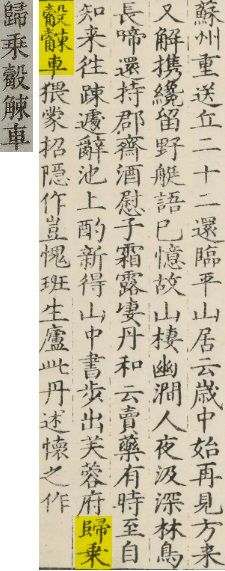 蘇州重送丘二十二還臨平山居云歳中始再見方来
又解携纔留野艇語已憶故山棲幽澗人夜汲深林鳥
長啼還持郡齋酒慰子霜露凄丹和云賣藥有時至自
知来往踈遽辭池上酌新得山中書步出芙蓉府歸乗
觳觫車猥蒙招隠作豈愧班生廬此丹述懐之作
歸乗觳觫車